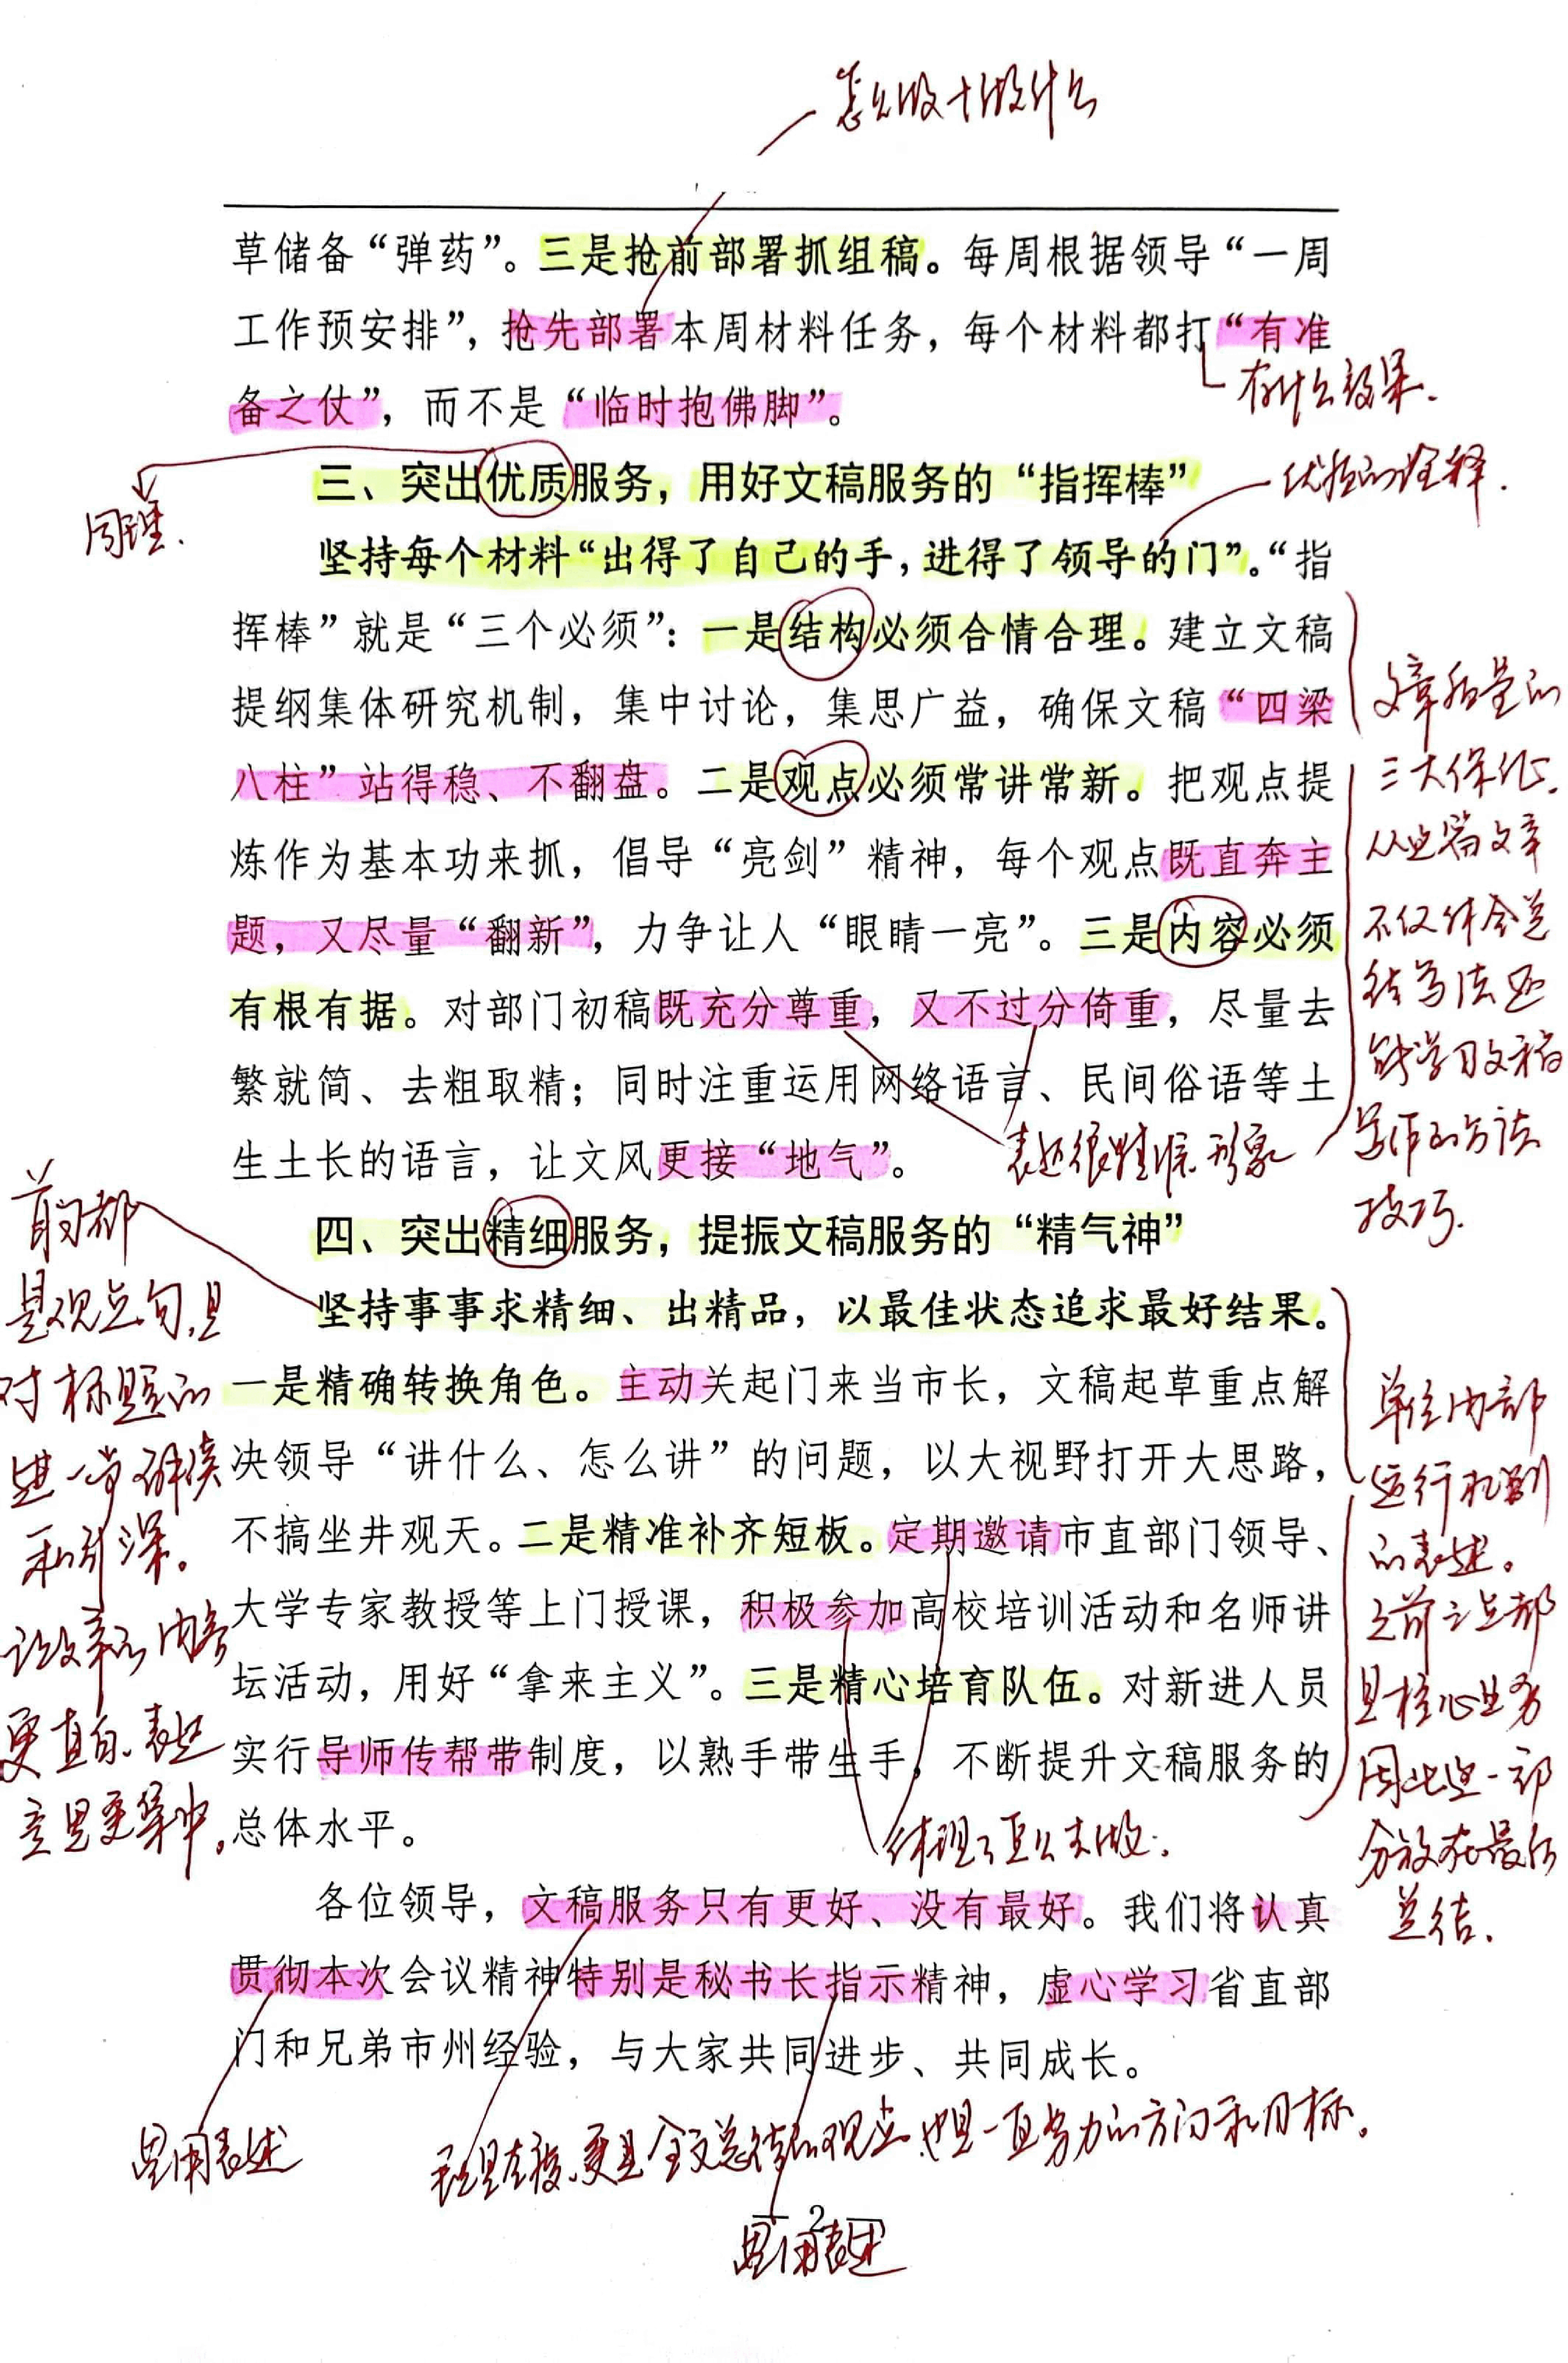 怎么做+做什么
草储备“弹药”。三是抢前部署抓组稿。每周根据领导“一周
工作预安排”，抢先部署本周材料任务，每个材料都打“有准
备之仗”，而不是“临时抱佛脚”。
有什么效果.
三、突出优质服务，用好文稿服务的“指挥棒”
同理.
优质的诠释.
坚持每个材料“出得了自己的手，进得了领导的门”。“指
挥棒”就是“三个必须”：一是结构必须合情合理。建立文稿
提纲集体研究机制，集中讨论，集思广益，确保文稿“四梁
八柱”站得稳、不翻盘。二是观点必须常讲常新。把观点提
炼作为基本功来抓，倡导“亮剑”精神，每个观点既直奔主
题，又尽量“翻新”，力争让人“眼睛一亮”。三是内容必须
有根有据。对部门初稿既充分尊重，又不过分倚重，尽量去
繁就简、去粗取精；同时注重运用网络语言、民间俗语等土
生土长的语言，让文风更接“地气”。
表述很精准形象
文章质量的
三大保证.
从这篇文章
不仅体会总
结写法还
能学习文稿
写作的方法
技巧.
四、突出精细服务，提振文稿服务的“精气神”
坚持事事求精细、出精品，以最佳状态追求最好结果。
一是精确转换角色。主动关起门来当市长，文稿起草重点解
决领导“讲什么、怎么讲”的问题，以大视野打开大思路，
不搞坐井观天。二是精准补齐短板。定期邀请市直部门领导、
大学专家教授等上门授课，积极参加高校培训活动和名师讲
坛活动，用好“拿来主义”。三是精心培育队伍。对新进人员
实行导师传帮带制度，以熟手带生手，不断提升文稿服务的
总体水平。
首句都
是观点句,是
对标题的
进一步解读
和引深。
让文章的内容
更直白、表述
意思更集中。
体现了怎么去做.
单位内部
运行机制
的表述。
之前三点都
是核心业务
因此这一部
分放在最后
总结.
各位领导，文稿服务只有更好、没有最好。我们将认真
贯彻本次会议精神特别是秘书长指示精神，虚心学习省直部
门和兄弟市州经验，与大家共同进步、共同成长。
惯用表述
更是全文总结的观点,也是一直努力的方向和目标。
2
惯用表述